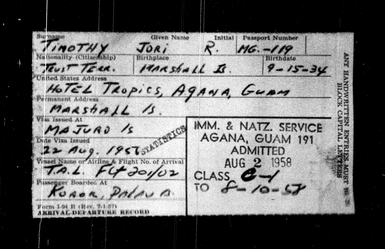 Surname Given Name Initial Passport Number
TIMOTHY JORI R. MG.-119
Nationality (Citizenship) Birthplace Birthdate
TRUST TERR. MARSHALL IS. 9-15-34
United States Address
HOTEL TROPICS, AGANA, GUAM
Permanent Address
MARSHALL IS.
Visa Issued At
MAJURO IS
Date Visa Issued
22 AUG. 1956
STATISTICS
Vessel Name or Airline & Flight No. of Arrival
T.A.L. FLT 201/02
Passenger Boarded at
KOROR, PALAU
Form I-94 B (Rev. 7-1-57)
ARRIVAL-DEPARTURE RECORD
IMM. & NATZ. SERVICE
AGANA, GUAM 191
ADMITTED
AUG 2 1958
CLASS C-1
TO 8-10-58
ANY HANDWRITTEN ENTRIES MUST BE IN
BLOCK CAPITAL LETTERS